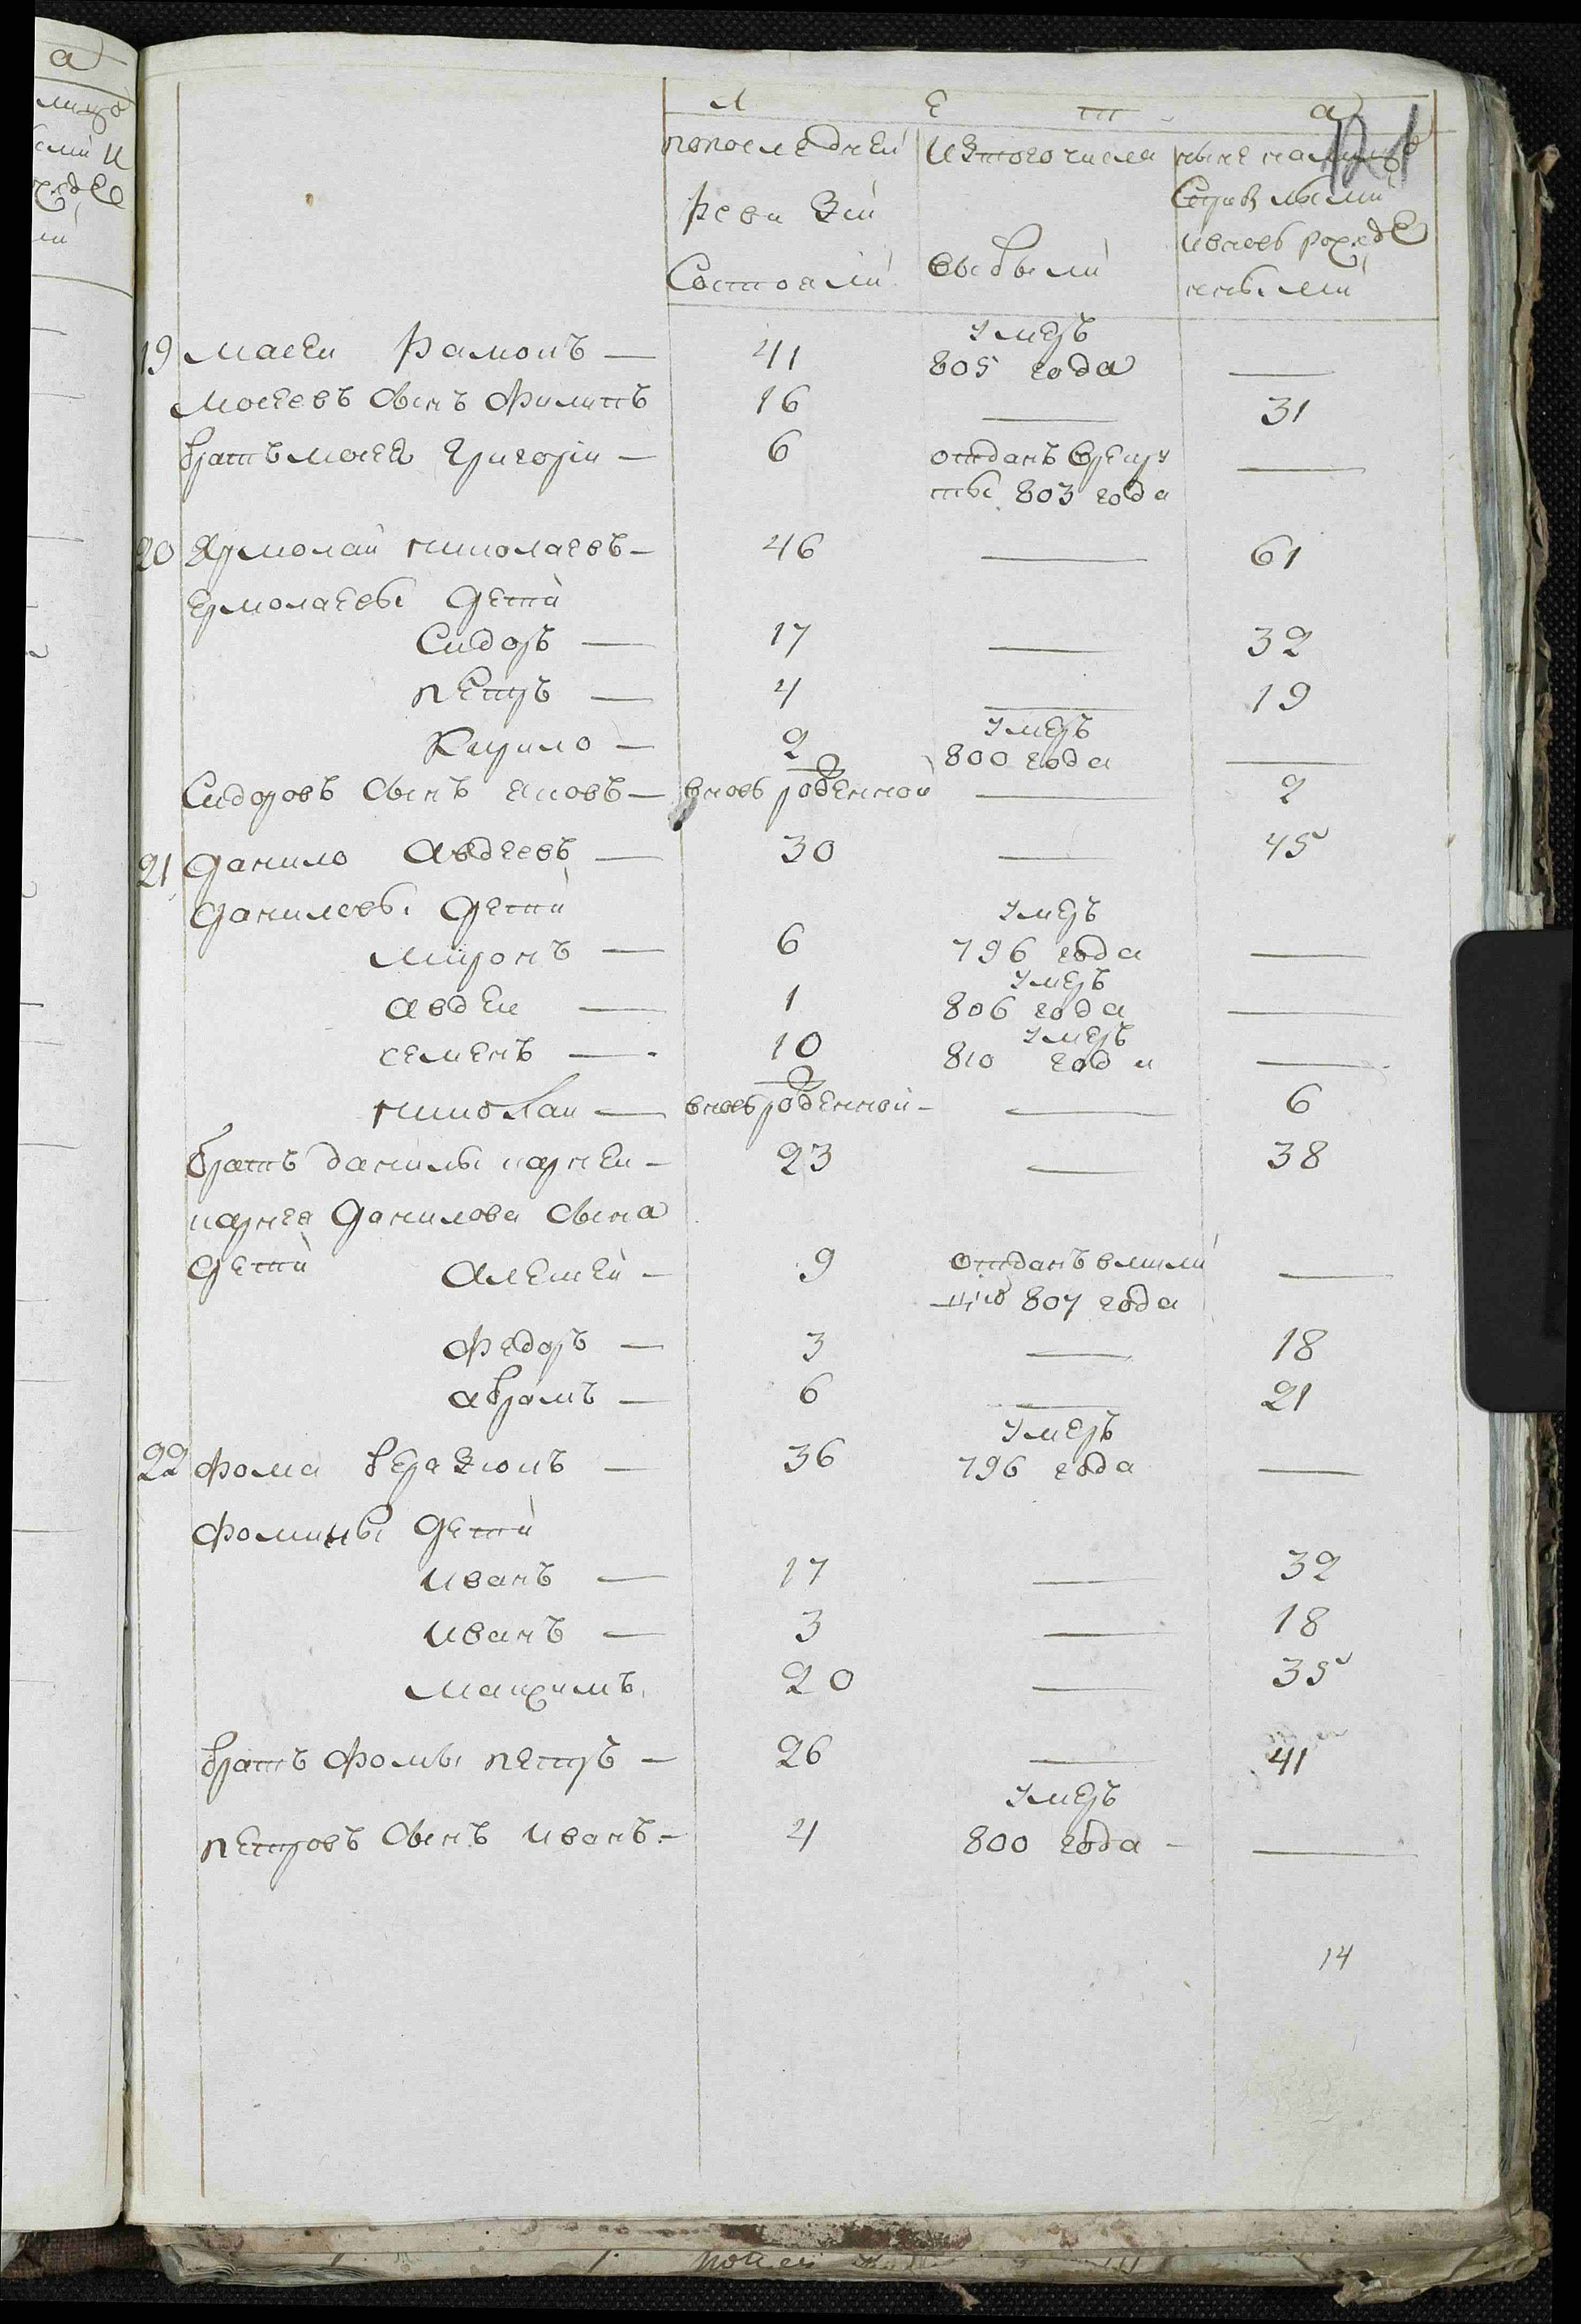 Л Е т а
121
по последней
Ревизіи
Состояли
Изтого числа
выбыли
ныне налицо
Сприбылыми
ивновь рожде
нными
19 Масеи Рамонъ — 41 умеръ 805 года —
Масеевъ Сынъ Филипъ 16 — 31
братъ масея Григореи — 6 отданъ врекру
ты 803 года —
20 Ярмолаи николаевъ — 46 — 61
Ермолаевы Дети
Сидоръ — 17 — 32
Петръ — 4 — 19
Кирило — 2 умеръ 800 года —
Сидоровъ Сынъ яковъ — вновь рожденной — 2
21 Данило Авдеевъ — 30 — 45
Даниловы Дети
миронъ — 6 умеръ 796 года —
авдеи — 1 умеръ 806 года —
семенъ — 10 умеръ 810 года —
николаи — вновь рожденной — 6
братъ данилы карнеи — 23 — 38
карнея Данилова Сына
Дети Алексеи — 9 отданъ вмили
цию 807 года —
Федоръ — 3 — 18
абрамъ — 6 — 21
22 Фома — 36 умеръ 796 года —
Фомины Дети
Иванъ — 17 — 32
Иванъ — 3 — 18
Максимъ 20 — 35
братъ Фомы петръ — 26 — 41
петровъ Сынъ Иванъ — 4 умеръ 800 года —
14